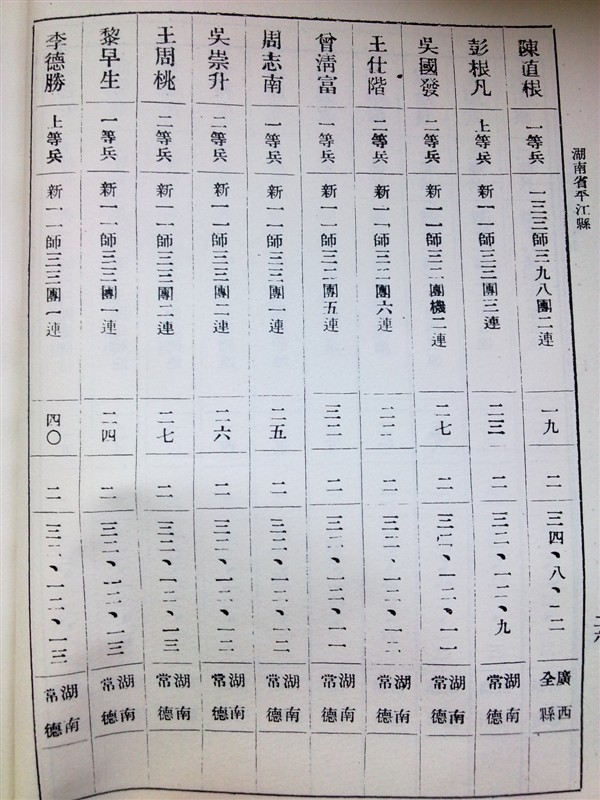 湖南省平江縣
陳直根 一等兵 一三三師三九八團二連 一九 二 三四、八、一二 廣西全縣
彭根凡 上等兵 新一一師三三團三連 二三 二 三二、一二、九 湖南常德
吳國發 二等兵 新一一師三二團機二連 二七 二 三二、一二、一一 湖南常德
王仕階 二等兵 新一一師三二團六連 二二 二 三二、一二、一二 湖南常德
曾清富 一等兵 新一一師三二團五連 三二 二 三二、一二、一一 湖南常德
周志南 一等兵 新一一師三三團一連 二五 二 三二、一二、一二 湖南常德
吳崇升 二等兵 新一一師三三團二連 二六 二 三二、一二、一二 湖南常德
王周桃 二等兵 新一一師三三團二連 二七 二 三二、一二、一三 湖南常德
黎早生 一等兵 新一一師三三團一連 二四 二 三二、一二、一三 湖南常德
李德勝 上等兵 新一一師三三團一連 四〇 二 三二、一二、一三 湖南常德